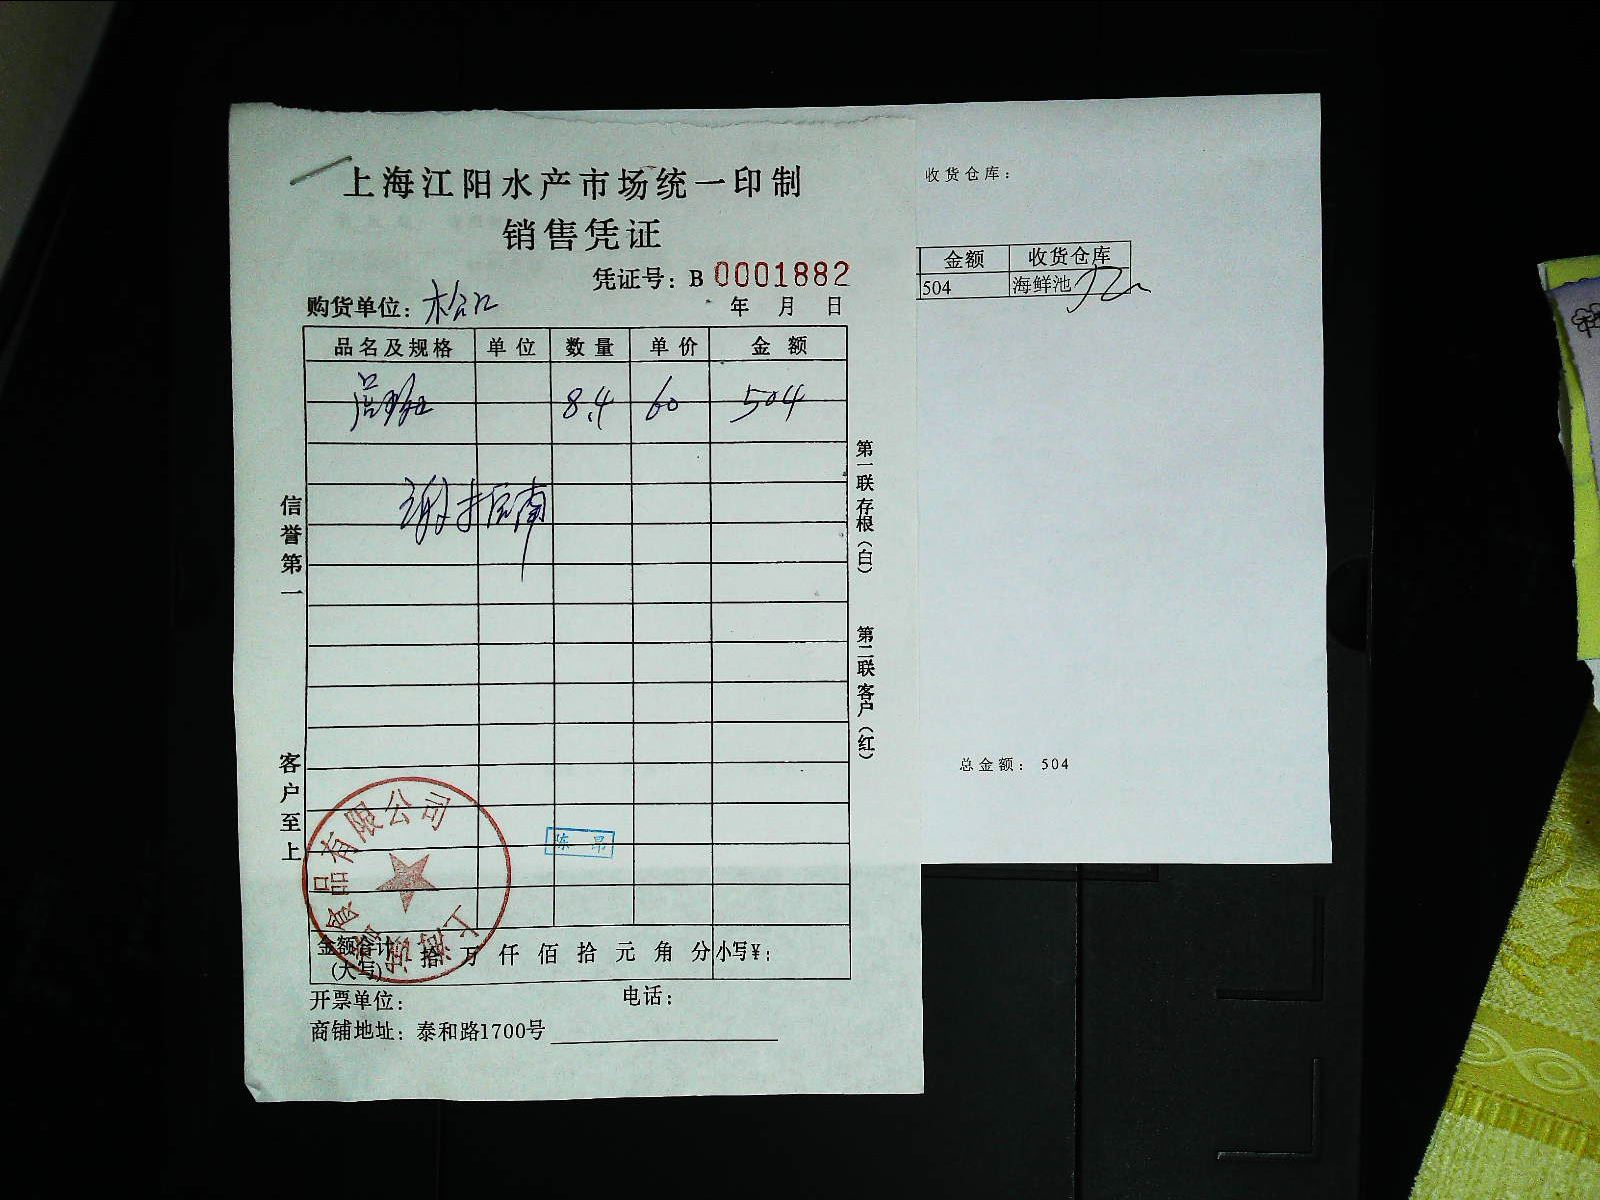 上海江阳水产市场统一印制
销售凭证
凭证号：B 0001882
购货单位：松江 年 月 日
品名及规格 单位 数量 单价 金额
8.4 60 504
谢指南
信誉第一
客户至上
第一联存根（白）
第二联客户（红）
陈 昂
食品有限公司
上海
金额合计（大写） 拾 万 仟 佰 拾 元 角 分 小写￥：
开票单位： 电话：
商铺地址：泰和路1700号
收货仓库：
金额 收货仓库
504 海鲜池
总金额： 504